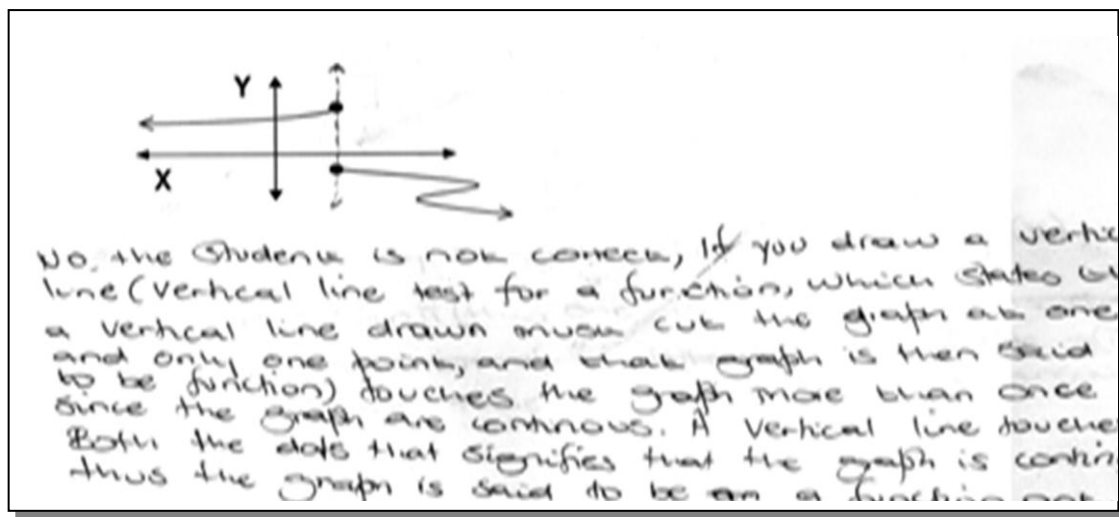 Y
X
No, the student is not correct, If you draw a
line (vertical line test for a function, which states
a vertical line drawn must cut the graph at one
and only one point, and that graph is then said
to be function) touches the graph more than once
since the graph are continous. A vertical line
Both the dots that signifies that the graph is
thus the graph is said to be a